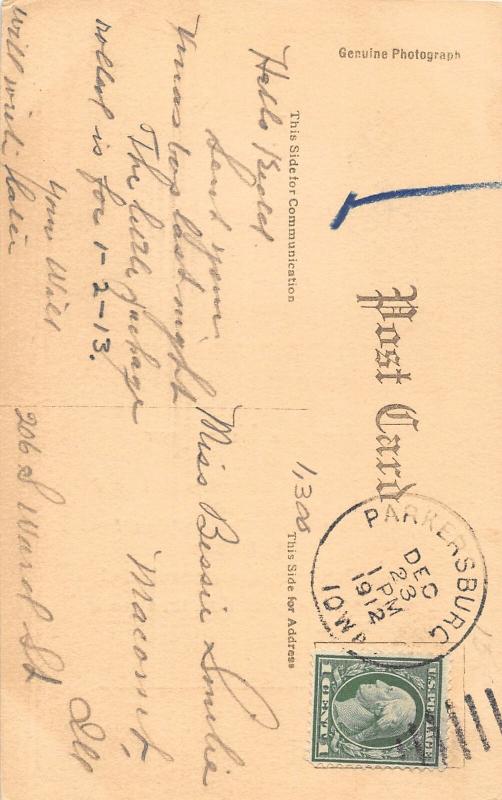 Genuine Photograph
Post Card
This Side for Communication
This Side for Address
PARKERSBURG
DEC
23
PM
1912
IOWA
U.S. POSTAGE
1 CENT 1
1,300
Hello
Sent your
Xmas box last night
The little package
rolled is for 1-2-13.
Your Will
will write later
Miss Bessie
Macomb,
Ill
206 S Ward St